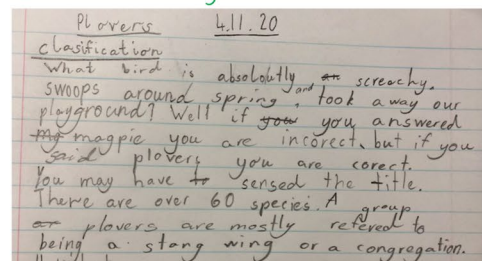 Plovers 4.11.20
clasification
What bird is absoloutly an screachy,
swoops around spring, and took away our
playground? Well if you you answered
my magpie you are incorect, but if you
said plovers you are corect.
You may have to sensed the title.
There are over 60 species. A group
or plovers are mostly refered to
being a stong wing or a congregation.